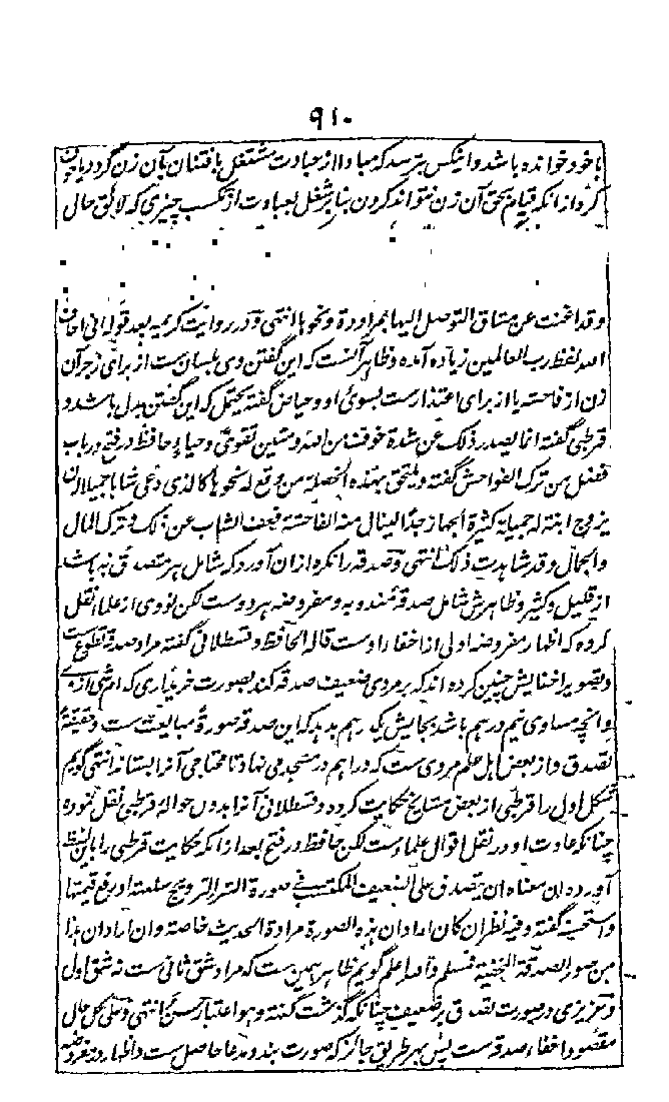 ۹۱۰
با خود خوانده باشد و اینکس بترسد که مبادا از عبادت مشتغل بافتتان بآن زن گردد یا خوف
کرد از انکه قیام بحق آن زن نتواند کردن بنا بر شغل بعبادت از تکسب چیزی که لائق حال
وقد اغنت عن مشاق التوصل الیها بمراودة ونحوها انتهی و در روایت کریمه بعد قوله انی اخاف
الله لفظ رب العالمین زیاده آمده و ظاهر آنست که این گفتن وی بلسان ست از برای زجر آن
زن از فاحشه یا از برای اعتذار ست بسوی او و عیاض گفته یحتمل که این گفتن بدل باشد و
قرطبی گفته انما یصدر ذلک عن شدة خوف من الله ومتین تقوی وحیاء و حافظ در فتح در باب
فضل من ترک الفواحش گفته ویلتحق بهذه الخصلة من وقع له نحوها کالذی دعی شابا جمیلا لان
یزوج ابنة له جمیلة کثیرة الجهاز جدا لینال منه الفاحشة فعف الشاب عن ذلک وترک المال
والجمال وقد شاهدت ذلک انتهی و صدقه را نکره از ان آورد که شامل هر متصدق به باشد
از قلیل و کثیر و ظاهرش شامل صدقه مندوبه و مفروضه هر دو ست لکن نووی از علما نقل
کرده که اظهار مفروضه اولی از اخفاء او ست قاله الحافظ و قسطلانی گفته مراد صدقه تطوع ست
و تصویر اخفایش چنین کرده اند که بر مردی ضعیف صدقه کند بصورت خریداری که از وی
وانچه مساوی نیم درهم باشد بجایش یک درهم بدهد که این صدقه صورة مبایعت ست و حقیقة
تصدق و از بعض اهل علم مروی ست که دراهم در مسجد می نهاد تا محتاجی آنرا بستاند انتهی گویم
شکل اول را قرطبی از بعض مشایخ حکایت کرده و قسطلانی آنرا بدون حواله قرطبی نقل نموده
چنانکه عادت او در نقل اقوال علما ست لکن حافظ در فتح بعد از انکه حکایت قرطبی را باین لفظ
آورده ان معناه ان یتصدق علی الضعیف المکتسب فی صورة الشراء لترویج سلعته او رفع قیمتها
واستحسنه گفته وفیه نظر ان کان اراد ان هذه الصورة مرادة الحدیث خاصة وان اراد ان هذا
من صور الصدقة الخفیة فمسلم والله اعلم گویم ظاهر همین ست که مراد شق ثانی ست نه شق اول
و عزیزی در صورت تصدق بر ضعیف چنانکه گذشت گفته وهو اعتبار حسن انتهی وعلی کل حال
مقصود اخفاء صدقه ست پس بهر طریق جائز که صورت بندد مدعا حاصل ست و اظهار در مفروضه